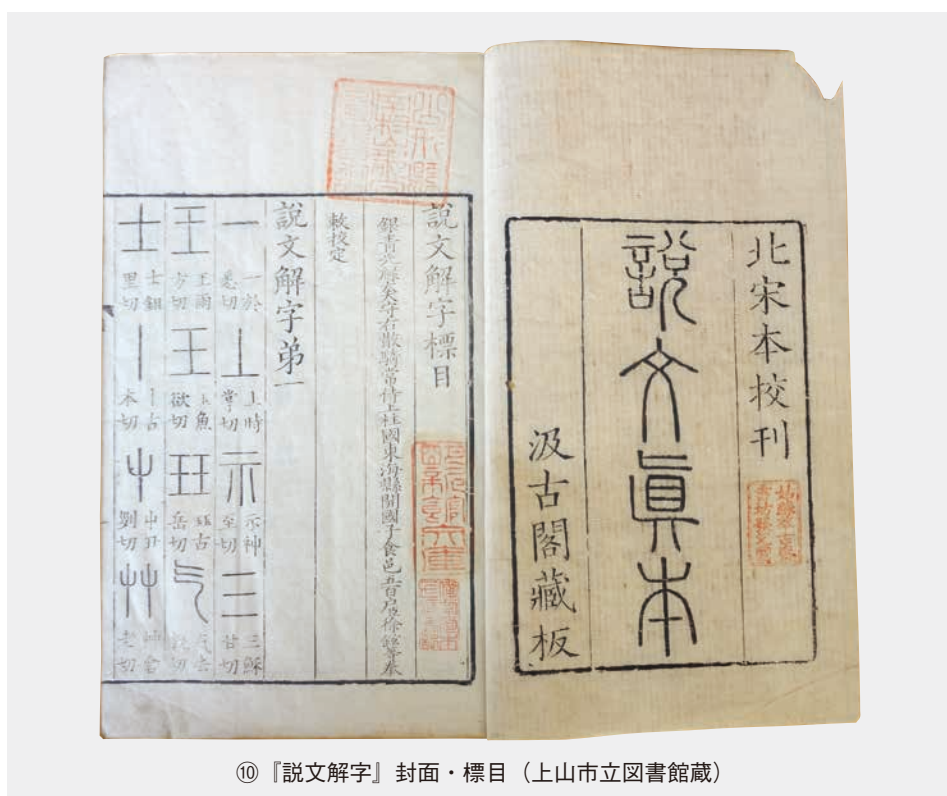 北宋本校刊
說文眞本
汲古閣藏板
說文解字標目
銀青光祿大夫守右散騎常侍上柱國東海縣開國子食邑五百戶臣徐鉉等奉
敕挍定
說文解字弟一
一 一於悉切 丄 上時掌切 示 示神至切 三 三穌甘切
王 王雨方切 王 玉魚欲切 玨 玨古岳切 气 气去旣切
士 士鉏里切 丨 丨古本切 屮 屮丑列切 艸 艸倉老切
⑩『説文解字』封面・標目（上山市立図書館蔵）